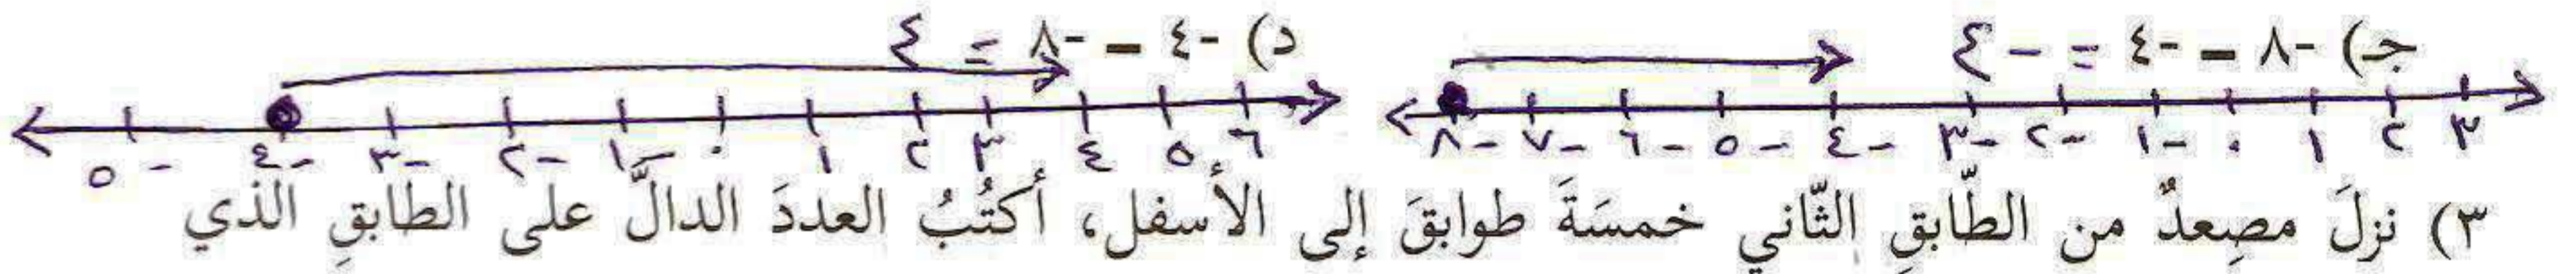 جـ) -٨ – -٤ = -٤
د) -٤ – -٨ = ٤
-٨ -٧ -٦ -٥ -٤ -٣ -٢ -١ ٠ ١ ٢ ٣
-٥ -٤ -٣ -٢ -١ ٠ ١ ٢ ٣ ٤ ٥ ٦
٣) نزلَ مصِعدٌ من الطّابقِ الثّاني خمسَةَ طوابقَ إلى الأسفل، أكتُبُ العددَ الدالَّ على الطابقِ الذي